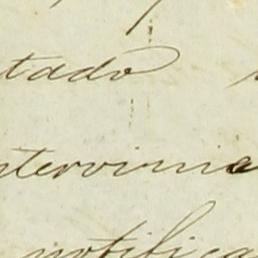 tado
tervinie
notifica